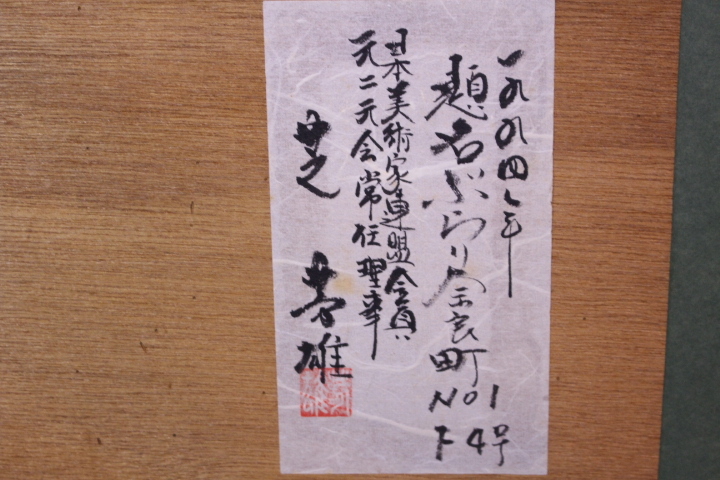 一九九四年
題名ぶらり奈良町
NO1
F4号
日本美術家連盟会員
元二元会常任理事
芝 芳雄